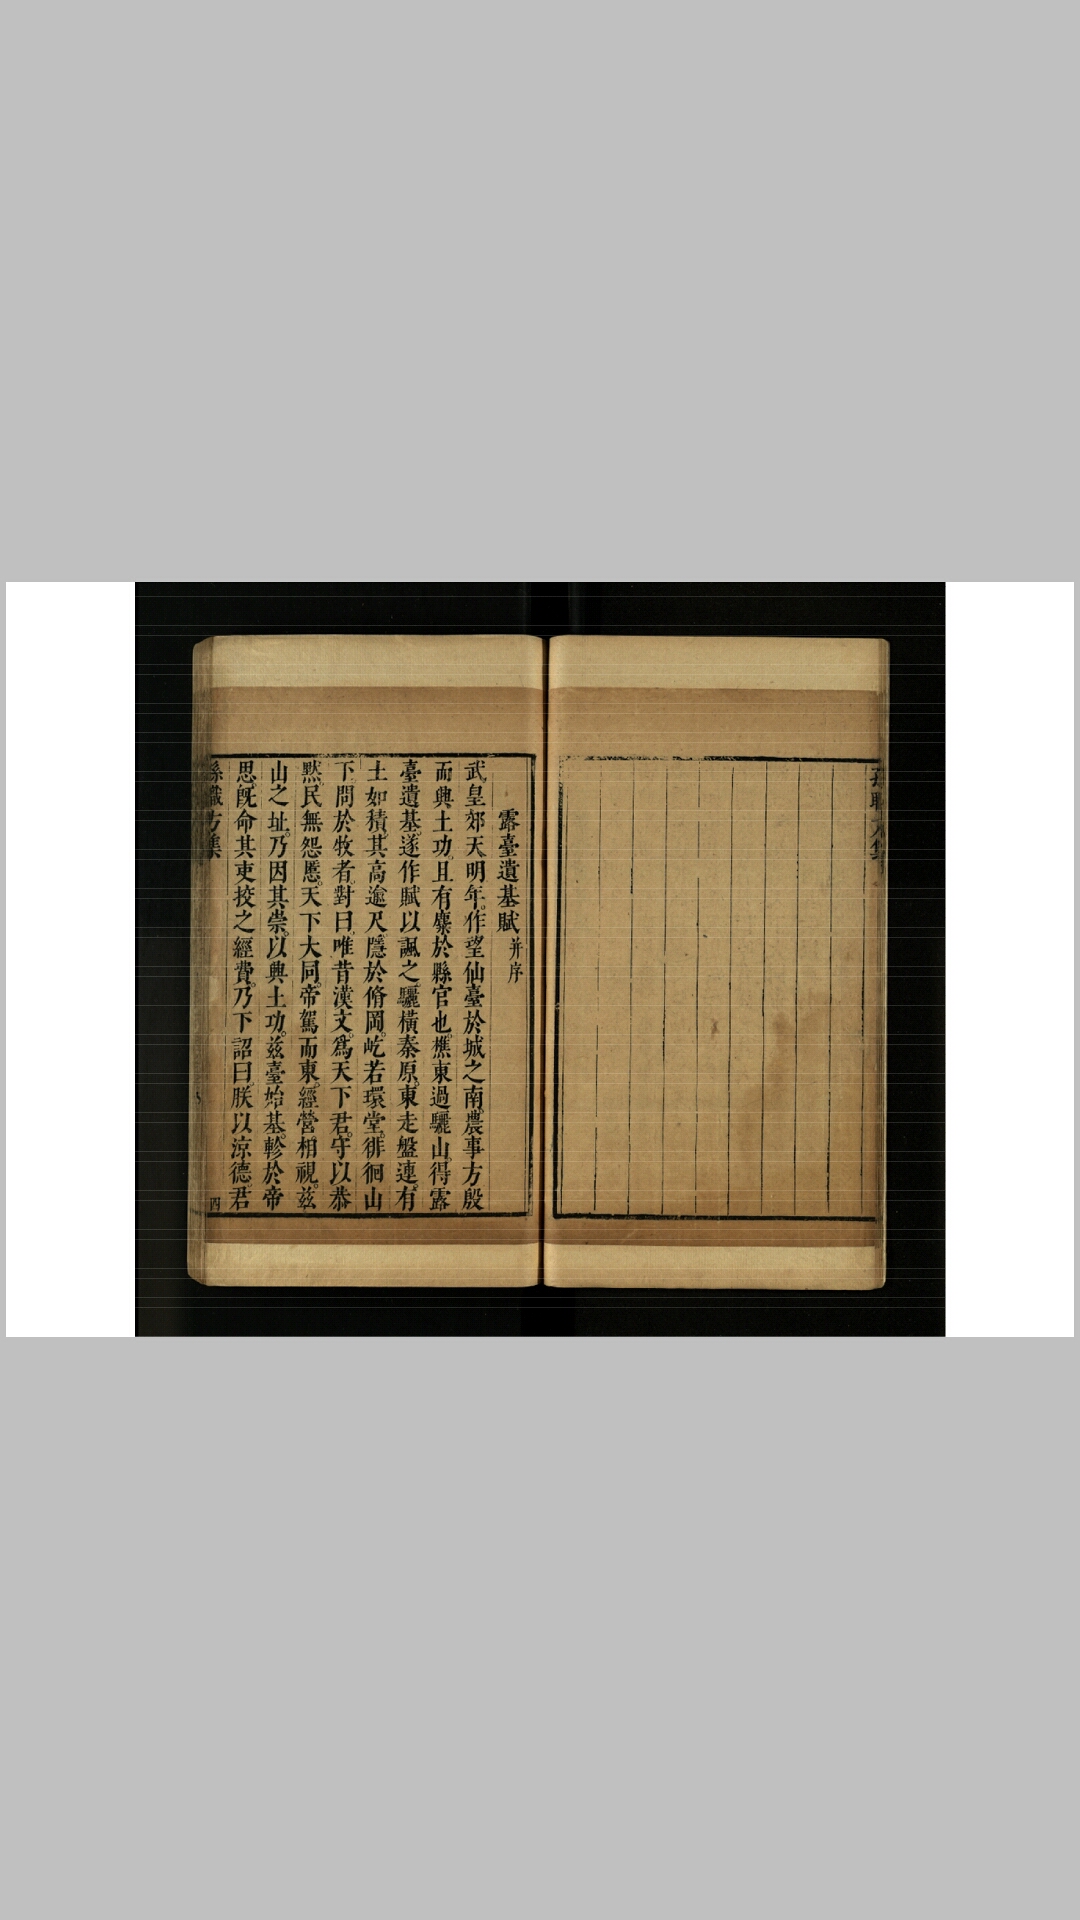 露臺遺基賦并序
武皇郊天明年。作望仙臺於城之南。農事方殷
而興土功。且有糜於縣官也。樵東過驪山。得露
臺遺基。遂作賦以諷之。驪橫秦原。東走盤連。有
土如積。其高逾尺。隱於脩岡。屹若環堂。徘徊山
下。問於牧者。對曰。唯昔漢文。爲天下君。守以恭
默。民無怨慝。天下大同。帝駕而東。經營相視。茲
山之址。乃因其崇。以興土功。茲臺始基。軫於帝
思。旣命其吏。挍之經費。乃下詔曰。朕以涼德。君
孫職方集
四